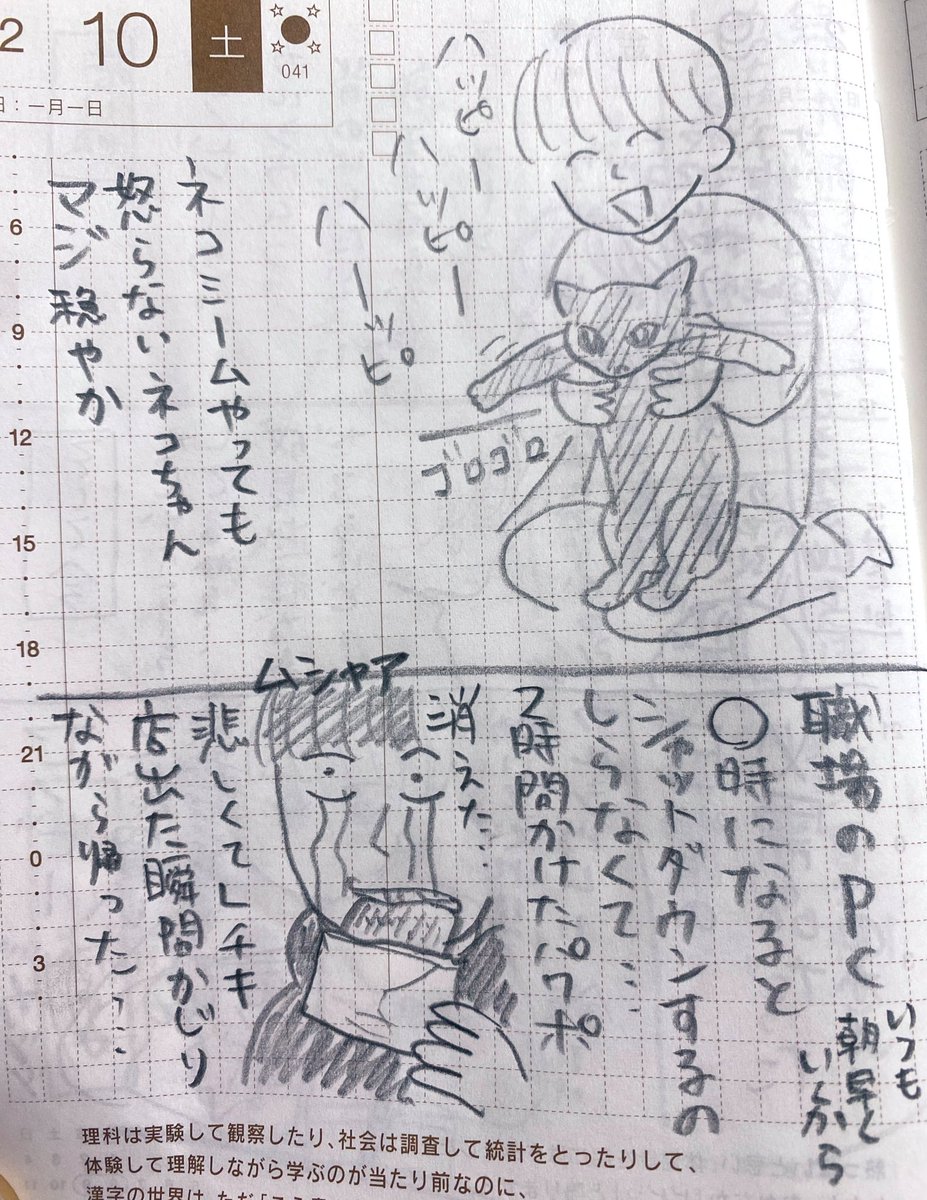 2
10
土
041
日：一月一日
6
9
12
15
18
21
0
3
ハッピー
ハッピー
ハーッピ
ゴロゴロ
ネコミームやっても
怒らないネコちゃん
マジ穏やか
職場のPC
いつも
朝早く
いくから
〇時になると
シャットダウンするの
しらなくて…
2時間かけたパワポ
消えた…
ムシャア
悲しくてLチキ
店出た瞬間かじり
ながら帰った…
理科は実験して観察したり、社会は調査して統計をとったりして、
体験して理解しながら学ぶのが当たり前なのに、
漢字の世界は、ただ「